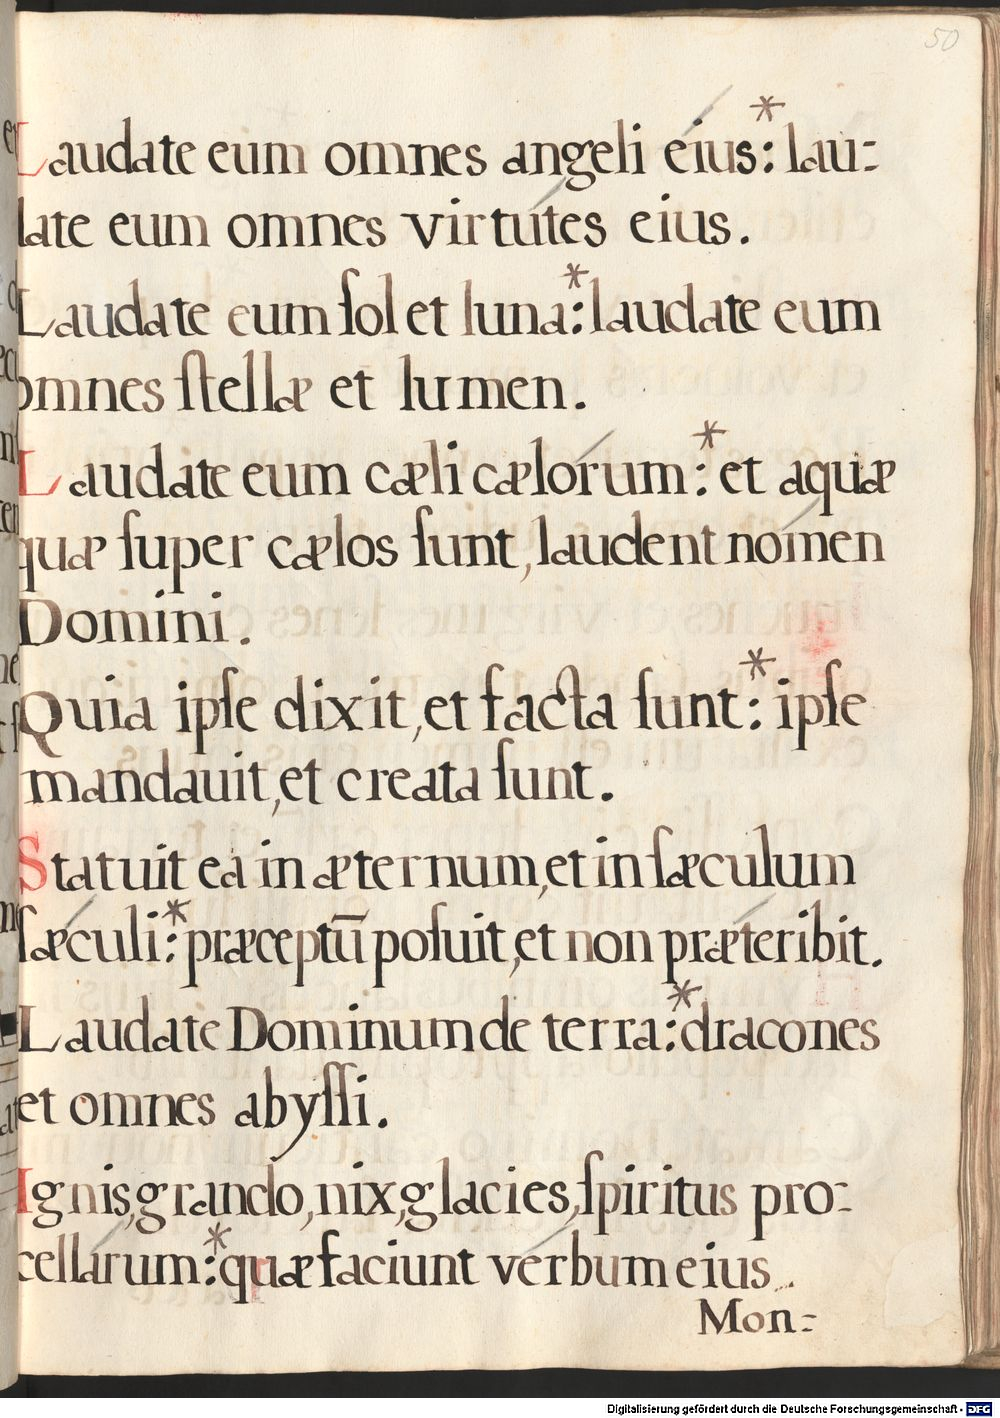 50
Laudate eum omnes angeli eius:* lau-
date eum omnes virtútes eius.
Laudate eum ſol et luna:* laudate eum
omnes ſtellæ et lumen.
Laudate eum cæli cælórum:* et aquæ
quæ ſuper cælos ſunt, laudent nómen
Domini.
Quia ipſe dixit, et facta ſunt:* ipſe
mandauit, et creata ſunt.
Statuit ea in æternum, et in ſæculum
ſæculi:* præceptū poſuit, et non præteribit.
Laudate Dominum de terra:* dracones
et omnes abyſſi.
Ignis, grando, nix, glacies, ſpiritus pro-
cellárum:* quæ faciunt vérbum eius.
Mon-
Digitalisierung gefördert durch die Deutsche Forschungsgemeinschaft - DFG